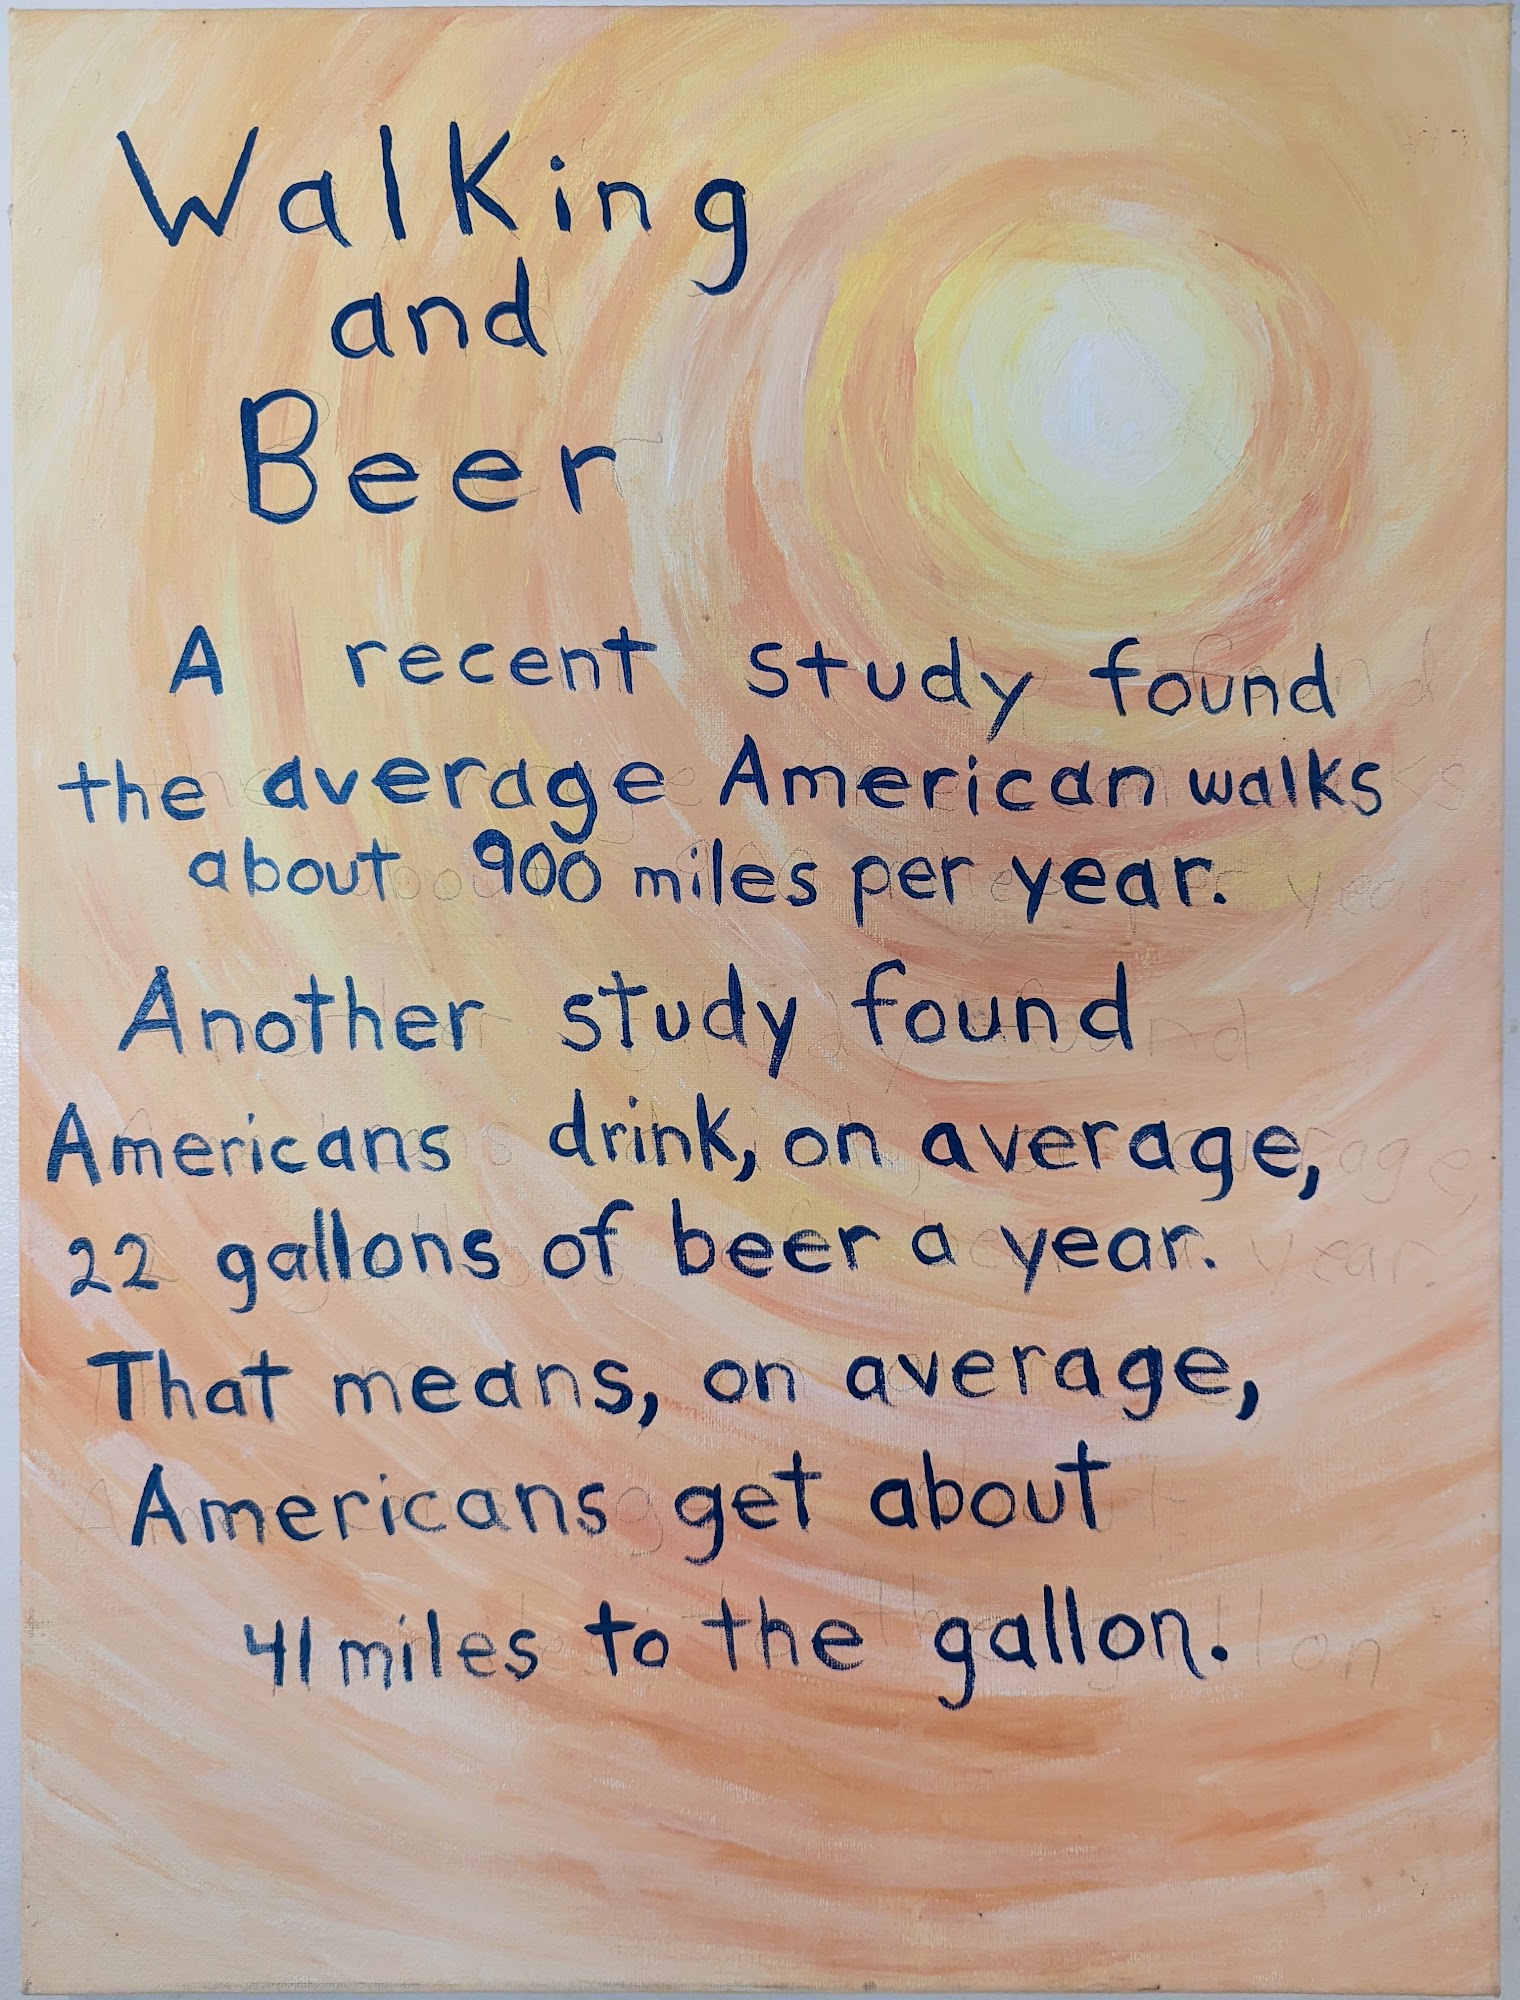 Walking
and
Beer
A recent study found
the average American walks
about 900 miles per year.
Another study found
Americans drink, on average,
22 gallons of beer a year.
That means, on average,
Americans get about
41 miles to the gallon.